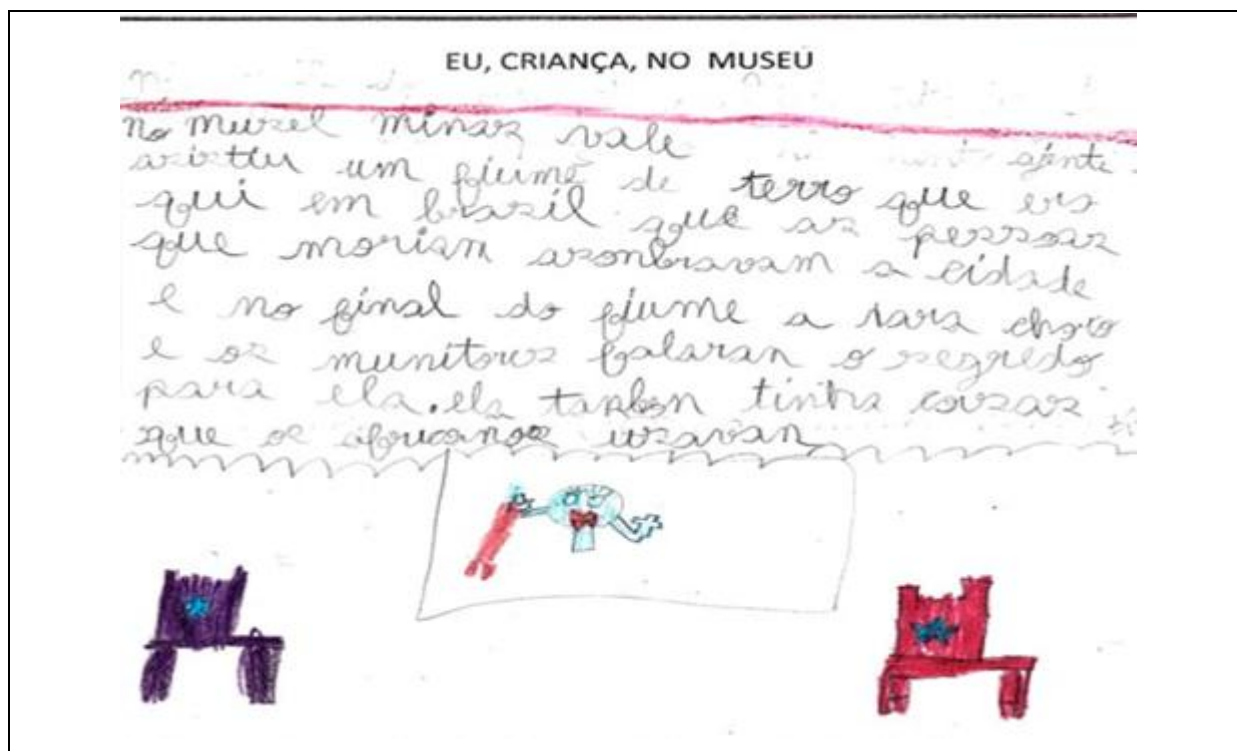 EU, CRIANÇA, NO MUSEU
No muzel minas vale ajente
asixtiu um fiume de terro que era
qui em brazil que as pessoas
que moriam asonbravam a cidade
e no final do fiume a sara choro
e os munitores falaran o segredo
para ela. ela tanbon tinha coizas
que os africanos uzavan